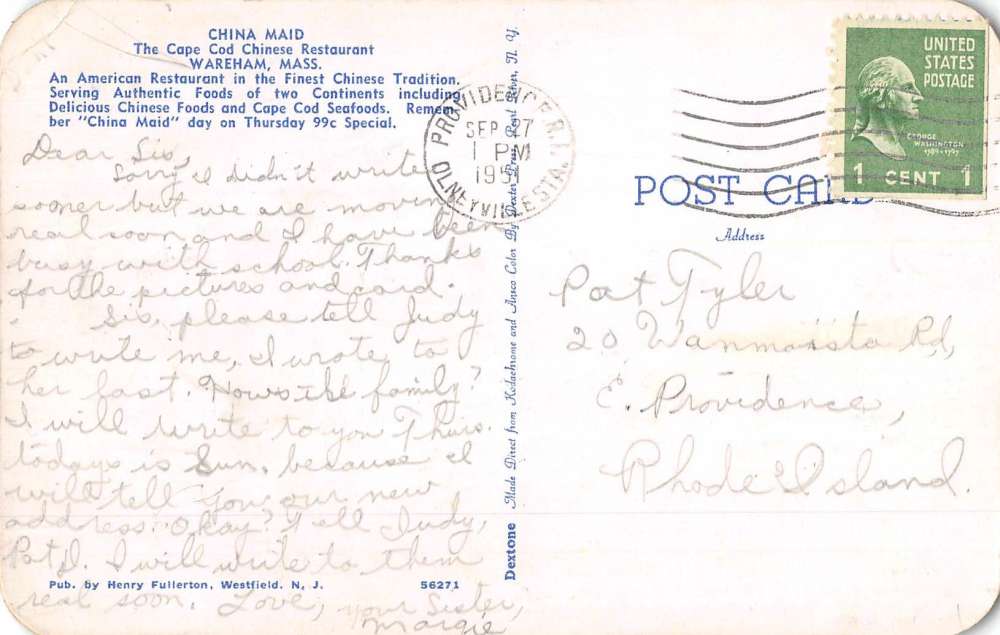 CHINA MAID
The Cape Cod Chinese Restaurant
WAREHAM, MASS.
An American Restaurant in the Finest Chinese Tradition.
Serving Authentic Foods of two Continents including
Delicious Chinese Foods and Cape Cod Seafoods. Remem-
ber "China Maid" day on Thursday 99c Special.
Dear Sis,
Sorry I didn't write
sooner but we are moving
real soon and I have been
busy with school. Thanks
for the pictures and card.
Sis, please tell Judy
to write me, I wrote to
her last. Hows the family?
I will write to you Thurs.
todays is Sun. because I
will tell you our new
address. Okay? Tell Judy,
Pat J. I will write to them
real soon. Love, your Sister,
Margie
Pub. by Henry Fullerton, Westfield, N. J.
56271
Dextone Made Direct from Kodachrome and Ansco Color By Dexter Press, Pearl River, N. Y.
PROVIDENCE R.I.
SEP 27
1 PM
1951
OLNEYVILLE STA.
UNITED
STATES
POSTAGE
GEORGE
WASHINGTON
1789-1797
1 CENT 1
POST CARD
Address
Pat Tyler
20 Wanmoisto Rd,
E. Providence,
Rhode Island.